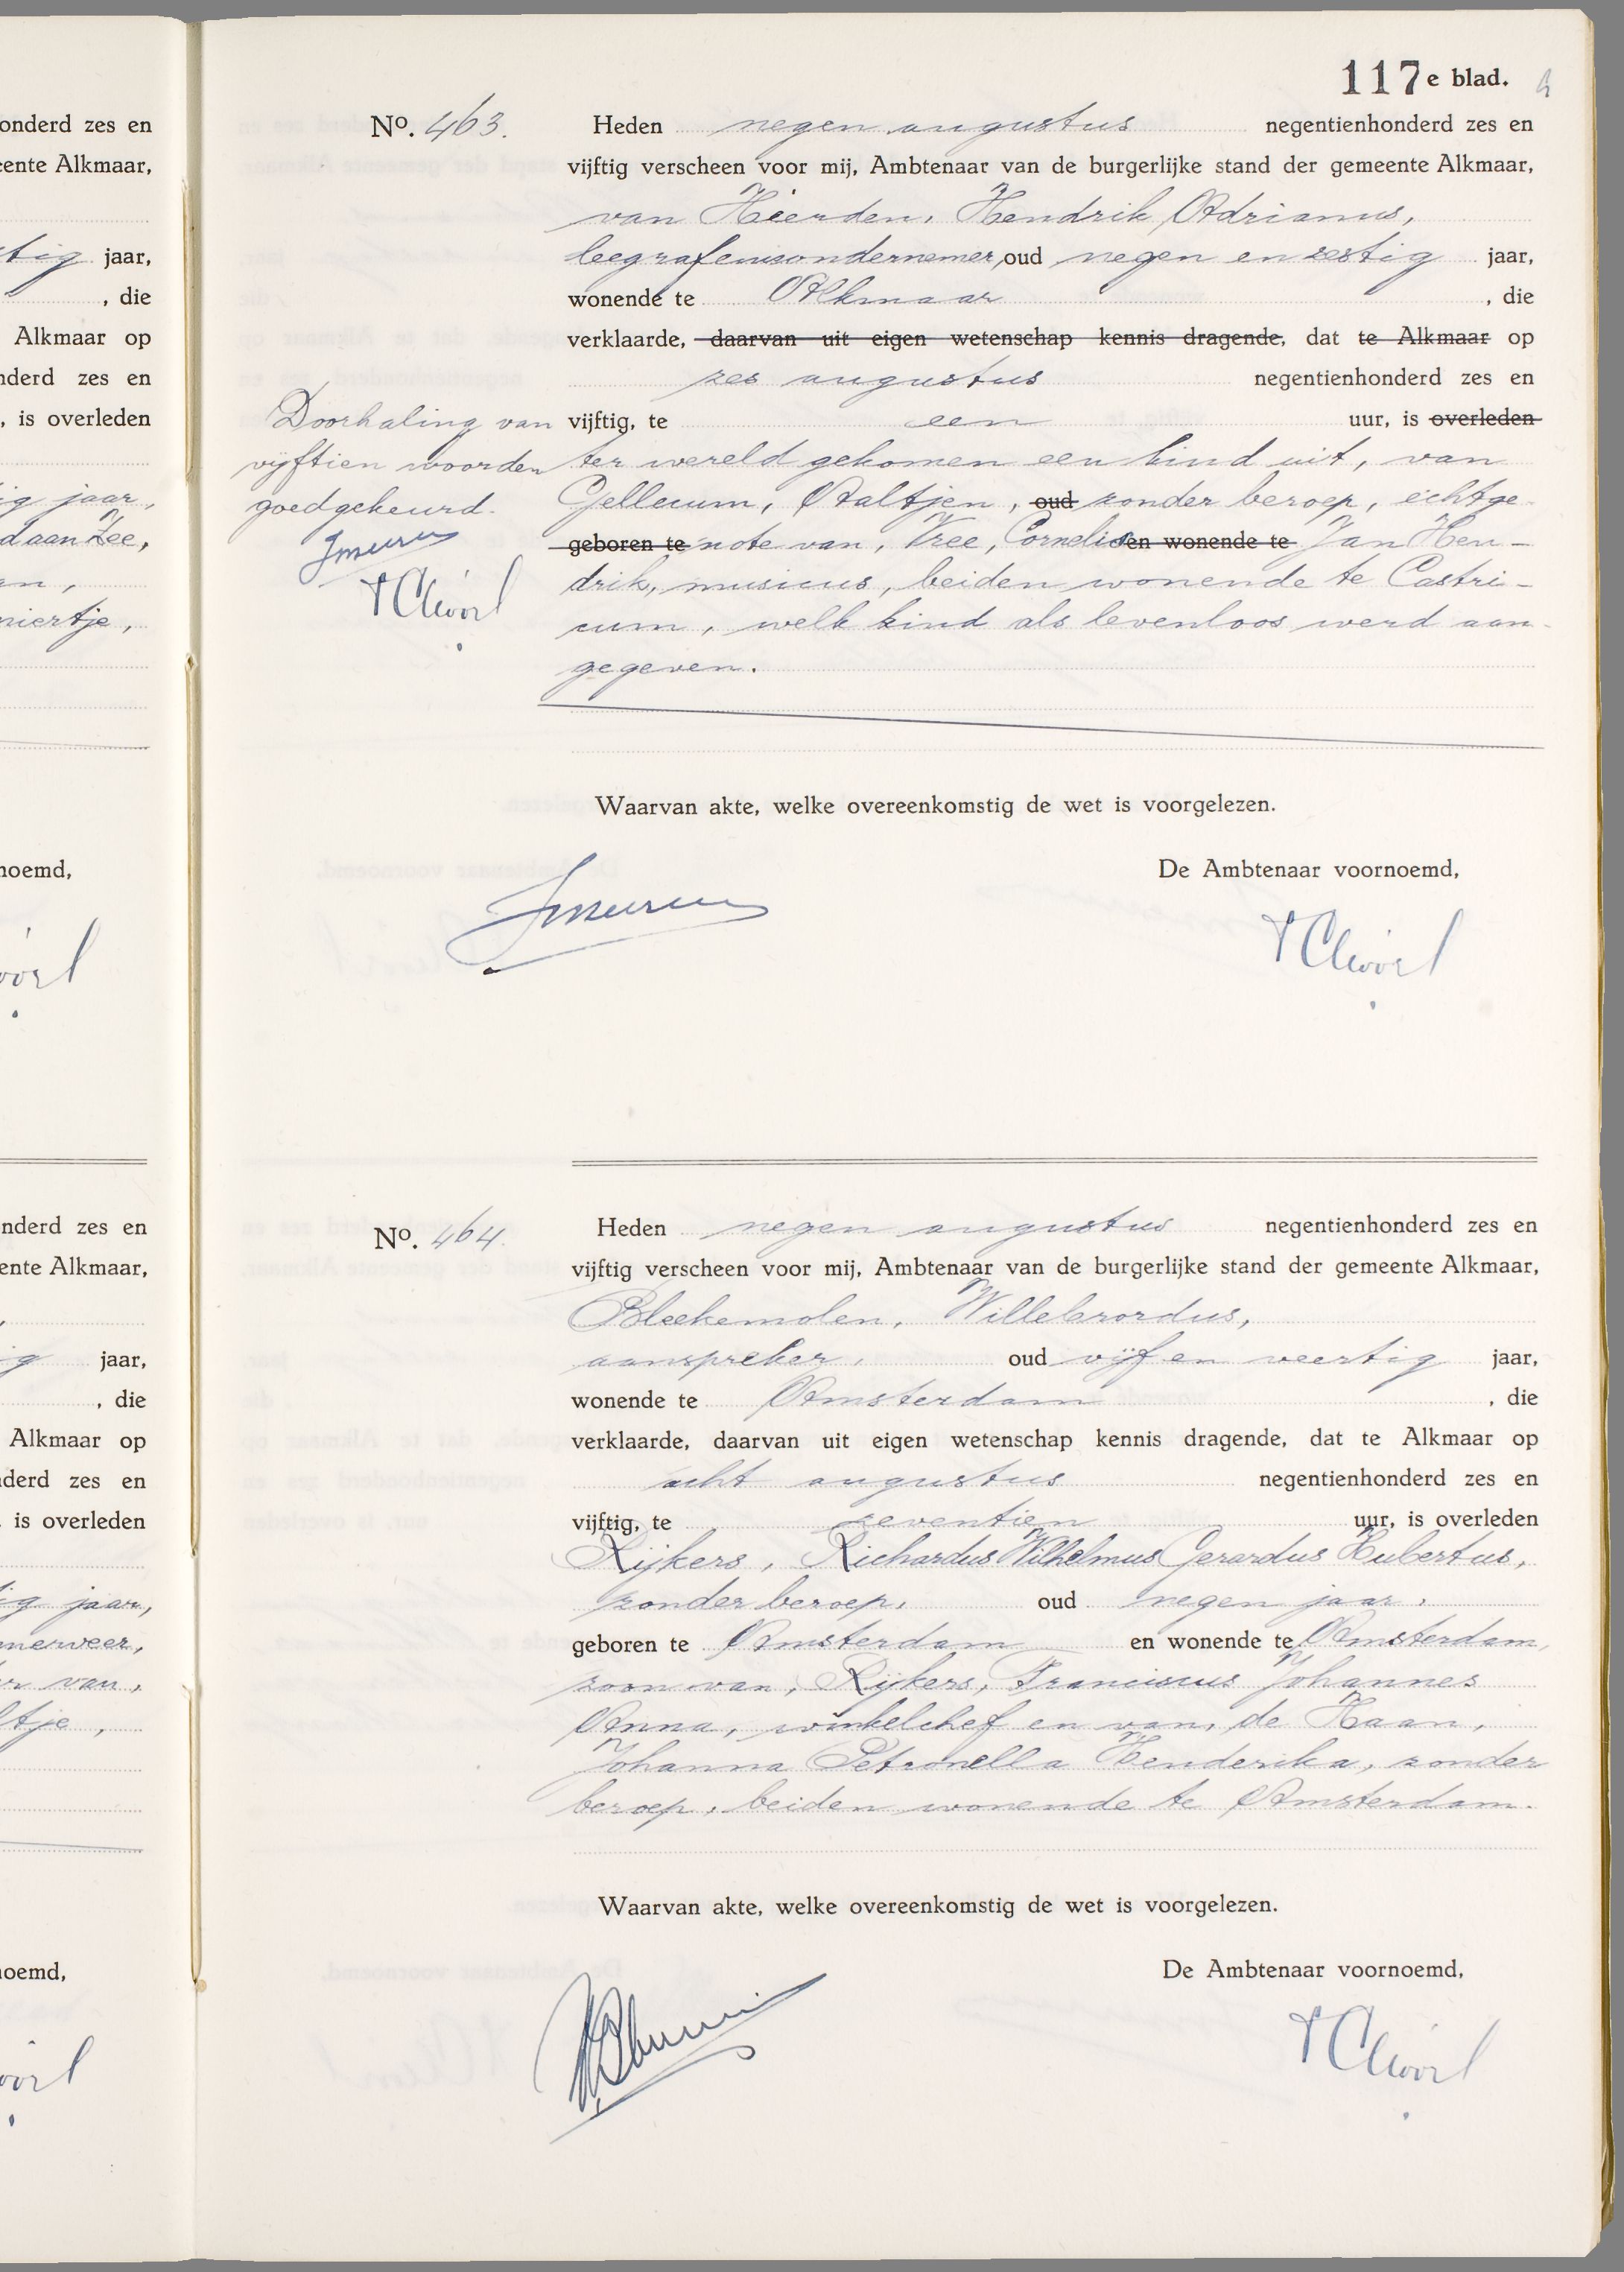 onderd zes en
eente Alkmaar,
tig jaar,
, die
Alkmaar op
nderd zes en
, is overleden
ig jaar,
d aan Zee,
an,
niertje,
noemd,
nderd zes en
ente Alkmaar,
g jaar,
, die
Alkmaar op
nderd zes en
is overleden
ig jaar,
merveer,
r van,
ltje,
noemd,
117e blad.
No. 463.
Heden negen augustus negentienhonderd zes en
vijftig verscheen voor mij, Ambtenaar van de burgerlijke stand der gemeente Alkmaar,
van Hierden, Hendrik Adrianus,
begrafenisondernemer, oud negen en zestig jaar,
wonende te Alkmaar, die
verklaarde, daarvan uit eigen wetenschap kennis dragende, dat te Alkmaar op
zes augustus negentienhonderd zes en
vijftig, te een uur, is overleden
ter wereld gekomen een kind uit, van
Gellecum, Aaltjen, oud zonder beroep, echtge-
geboren te note van, Vree, Cornelis en wonende te Jan Hen-
drik, musicus, beiden wonende te Castri-
cum, welk kind als levenloos werd aan-
gegeven.
Doorhaling van
vijftien woorden
goedgekeurd.
Waarvan akte, welke overeenkomstig de wet is voorgelezen.
De Ambtenaar voornoemd,
No. 464.
Heden negen augustus negentienhonderd zes en
vijftig verscheen voor mij, Ambtenaar van de burgerlijke stand der gemeente Alkmaar,
Bleekemolen, Willebrordus,
aanspreker, oud vijf en veertig jaar,
wonende te Amsterdam, die
verklaarde, daarvan uit eigen wetenschap kennis dragende, dat te Alkmaar op
acht augustus negentienhonderd zes en
vijftig, te zeventien uur, is overleden
Rijkers, Richardus Wilhelmus Gerardus Hubertus,
zonder beroep, oud negen jaar,
geboren te Amsterdam en wonende te Amsterdam,
zoon van, Rijkers, Franciscus Johannes
Anna, winkelchef en van, de Haan,
Johanna Petronella Henderika, zonder
beroep, beiden wonende te Amsterdam.
Waarvan akte, welke overeenkomstig de wet is voorgelezen.
De Ambtenaar voornoemd,